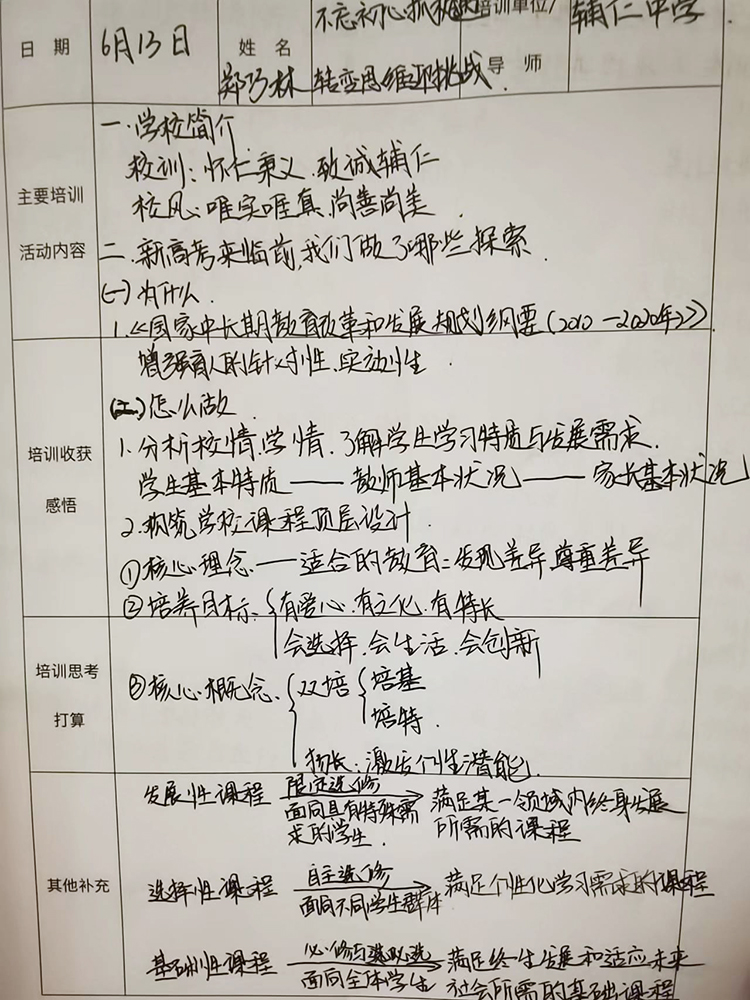 日 期 6月13日 姓 名 郑巧林 不忘初心抓 培训单位/ 辅仁中学.
转变思维迎挑战. 导 师
主要培训
活动内容
一.学校简介
校训：怀仁秉义.致诚辅仁
校风：唯实唯真.尚善尚美.
二.新高考来临前,我们做了哪些探索.
(一)为什么.
1.《国家中长期教育改革和发展规划纲要(2010-2020年)》
增强育人的针对性.实动性.
培训收获
感悟
(二)怎么做
1.分析校情.学情.了解学生学习特质与发展需求.
学生基本特质——教师基本状况——家长基本状况
2.构筑学校课程顶层设计.
①核心理念——适合的教育：发现差异.尊重差异
②培养目标.{有爱心.有文化.有特长
会选择.会生活.会创新
培训思考
打算
③核心概念.{双培{培基
培特.
扬长：激发个性潜能.
其他补充
发展性课程 限定选修 面向具有特殊需求的学生. 满足某一领域内终身发展
所需的课程
选择性课程 自主选修 面向不同学生群体 满足个性化学习需求的课程
基础性课程 必修与选必选 面向全体学生 满足终生发展和适应未来
社会所需的基础课程